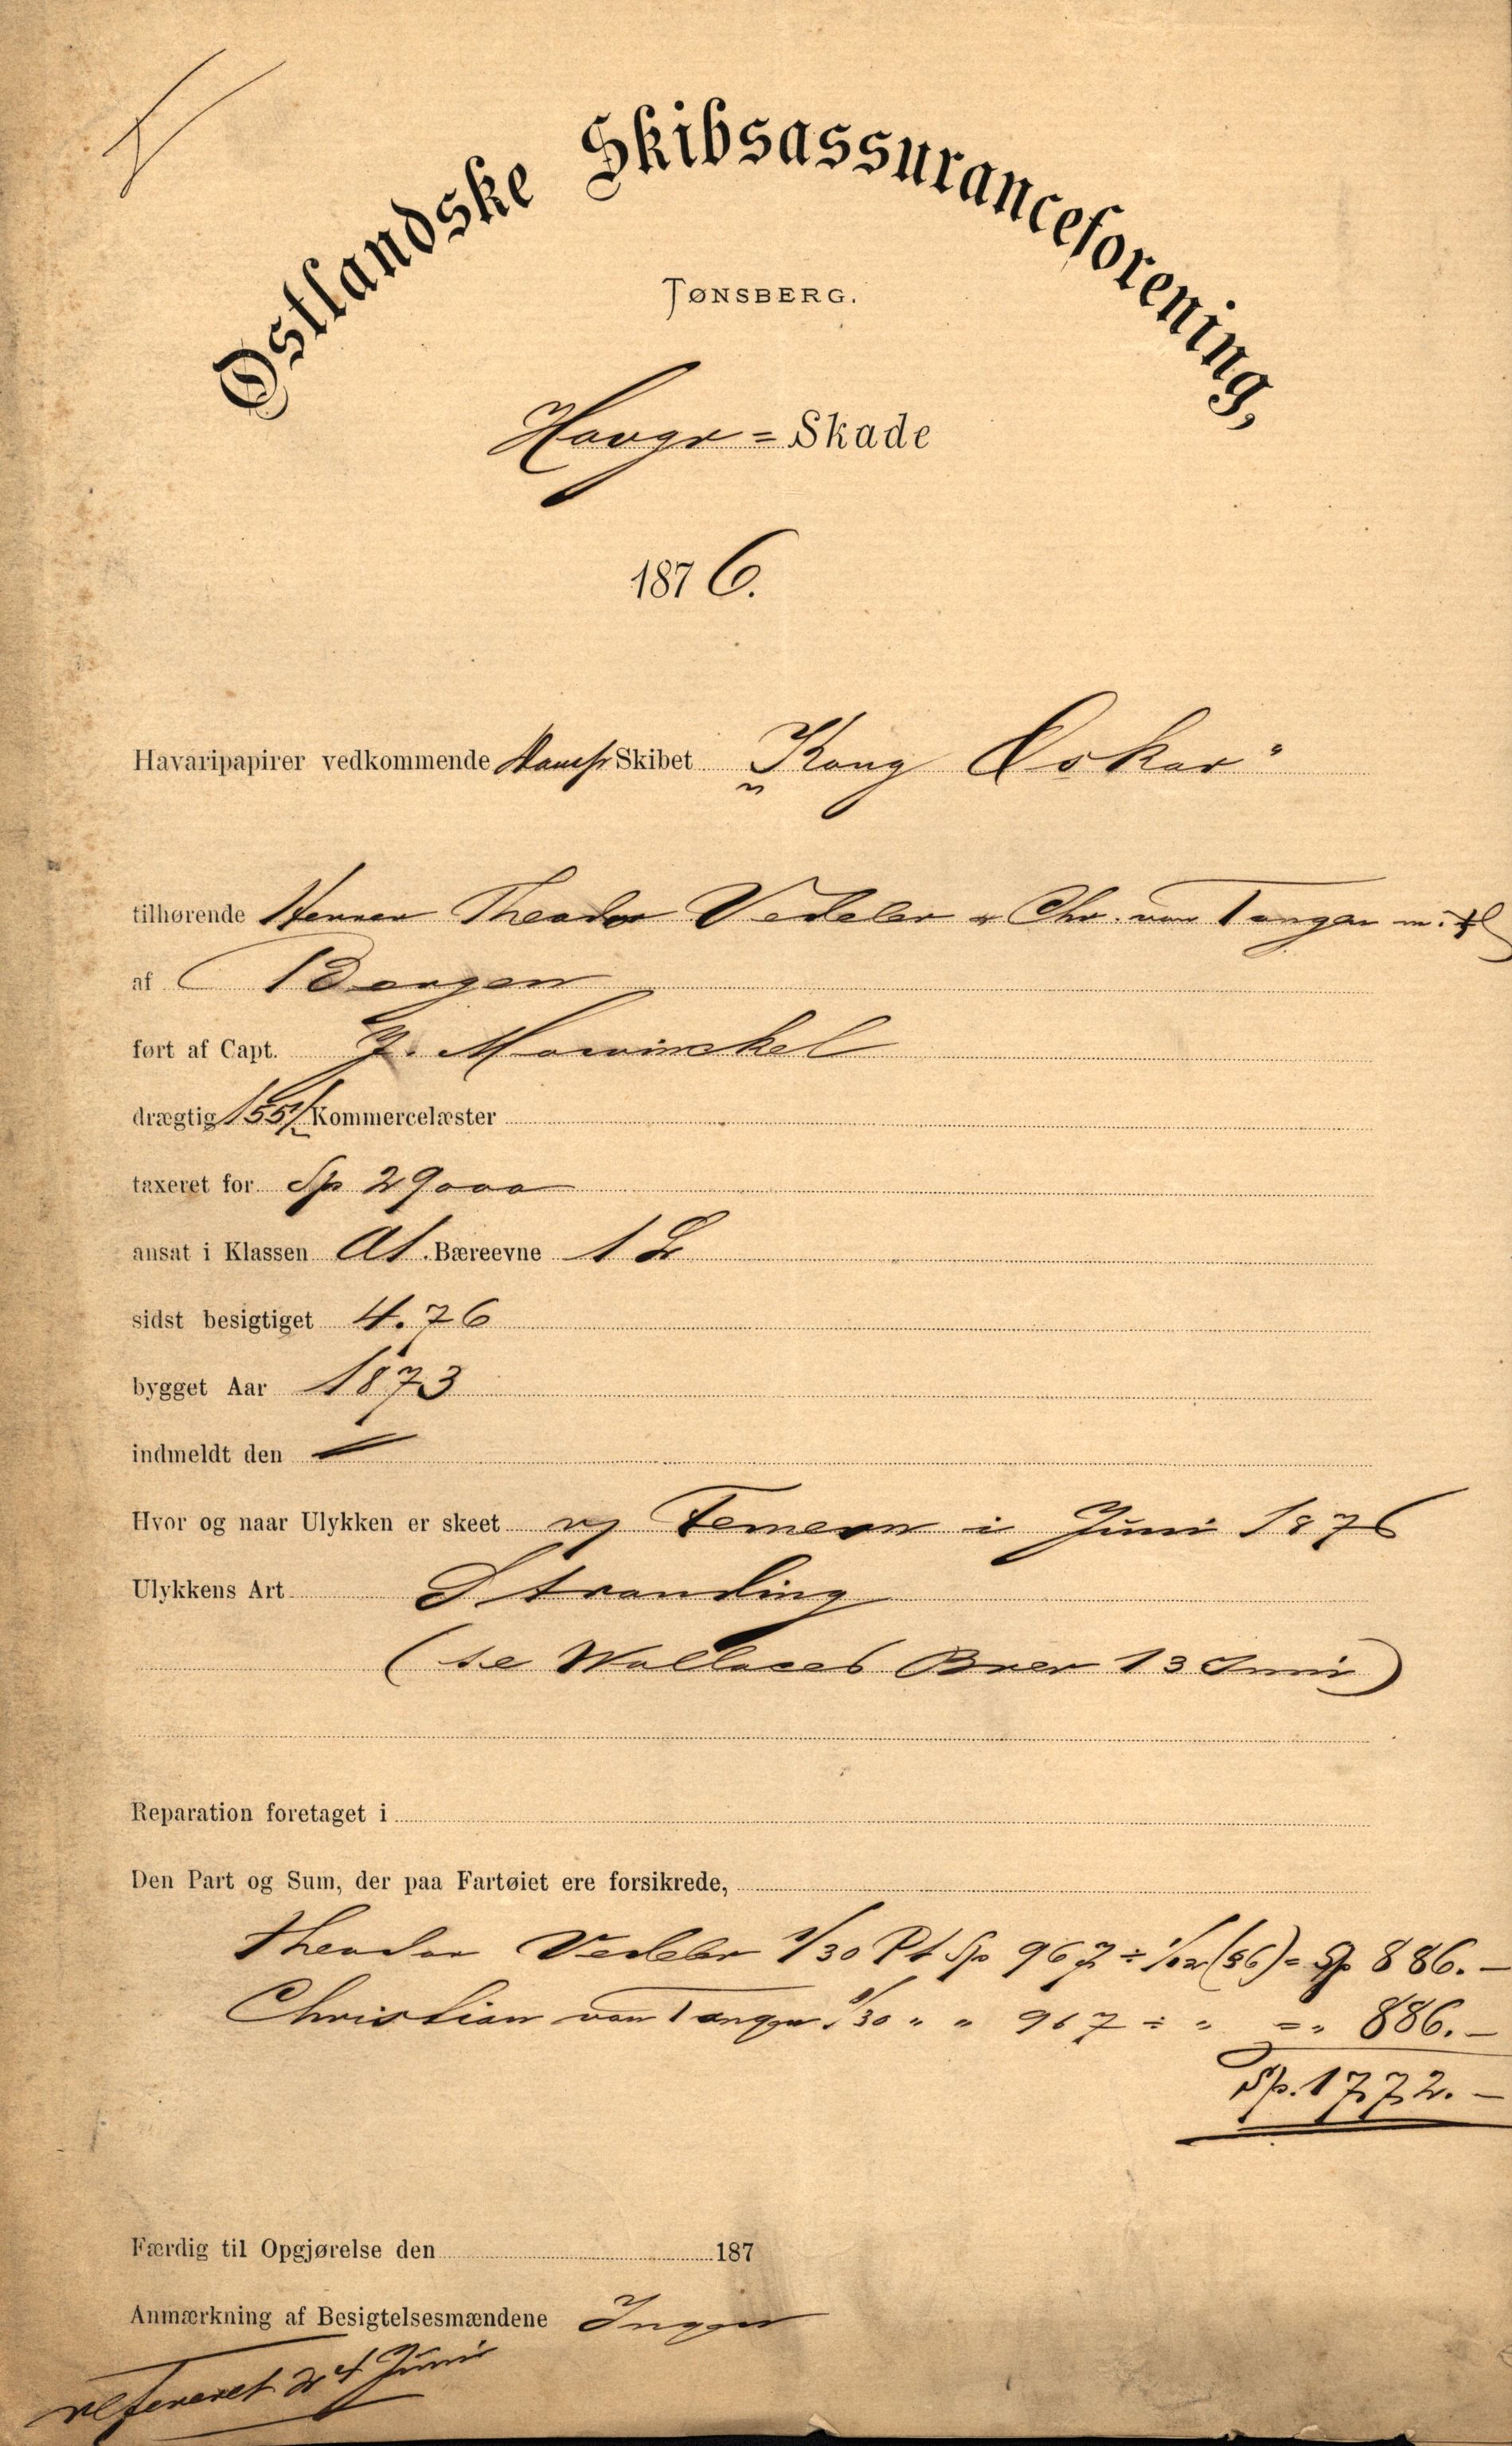 Østlandske Skibsassuranceforening,
TØNSBERG.
Havgr = Skade
1876.
Havaripapirer vedkommende Damp Skibet „Kong Oskar"
tilhørende Herrer Theodor Vedeler & Chr. von Tangen m. fl
af Bergen
ført af Capt. J. Mowinckel
drægtig 155 1/2 Kommercelæster
taxeret for Sp 29000
ansat i Klassen A1. Bæreevne 1
sidst besigtiget 4.76
bygget Aar 1873
indmeldt den
Hvor og naar Ulykken er skeet v/ Femern i Juni 1876
Ulykkens Art Stranding
(se Wallaces Brev 13 Juni)
Reparation foretaget i
Den Part og Sum, der paa Fartøiet ere forsikrede,
Theodor Vedeler 1/30 Pt Sp 967 ÷ 1/12 (86) = Sp 886.—
Christian von Tangen 1/30 " " 967 ÷ " = " 886.—
Sp. 1772.—
Færdig til Opgjørelse den 187
Anmærkning af Besigtelsesmændene Ingen
refereret d 4 Juni